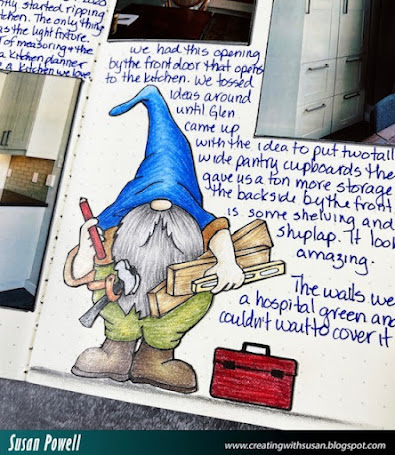 ntly started ripping
tchen. The only thing
as the light fixture.
of measuring & the
a kitchen planner
e a kitchen we love.
we had this opening
by the front door that opens
to the kitchen. We tossed
ideas around
until Glen
came up
with the idea to put two tall
wide pantry cupboards the
gave us a ton more storage
the backside by the front
is some shelving and
shiplap. It look
amazing.
The walls we
a hospital green and
couldn't wait to cover it
Susan Powell
www.creatingwithsusan.blogspot.com